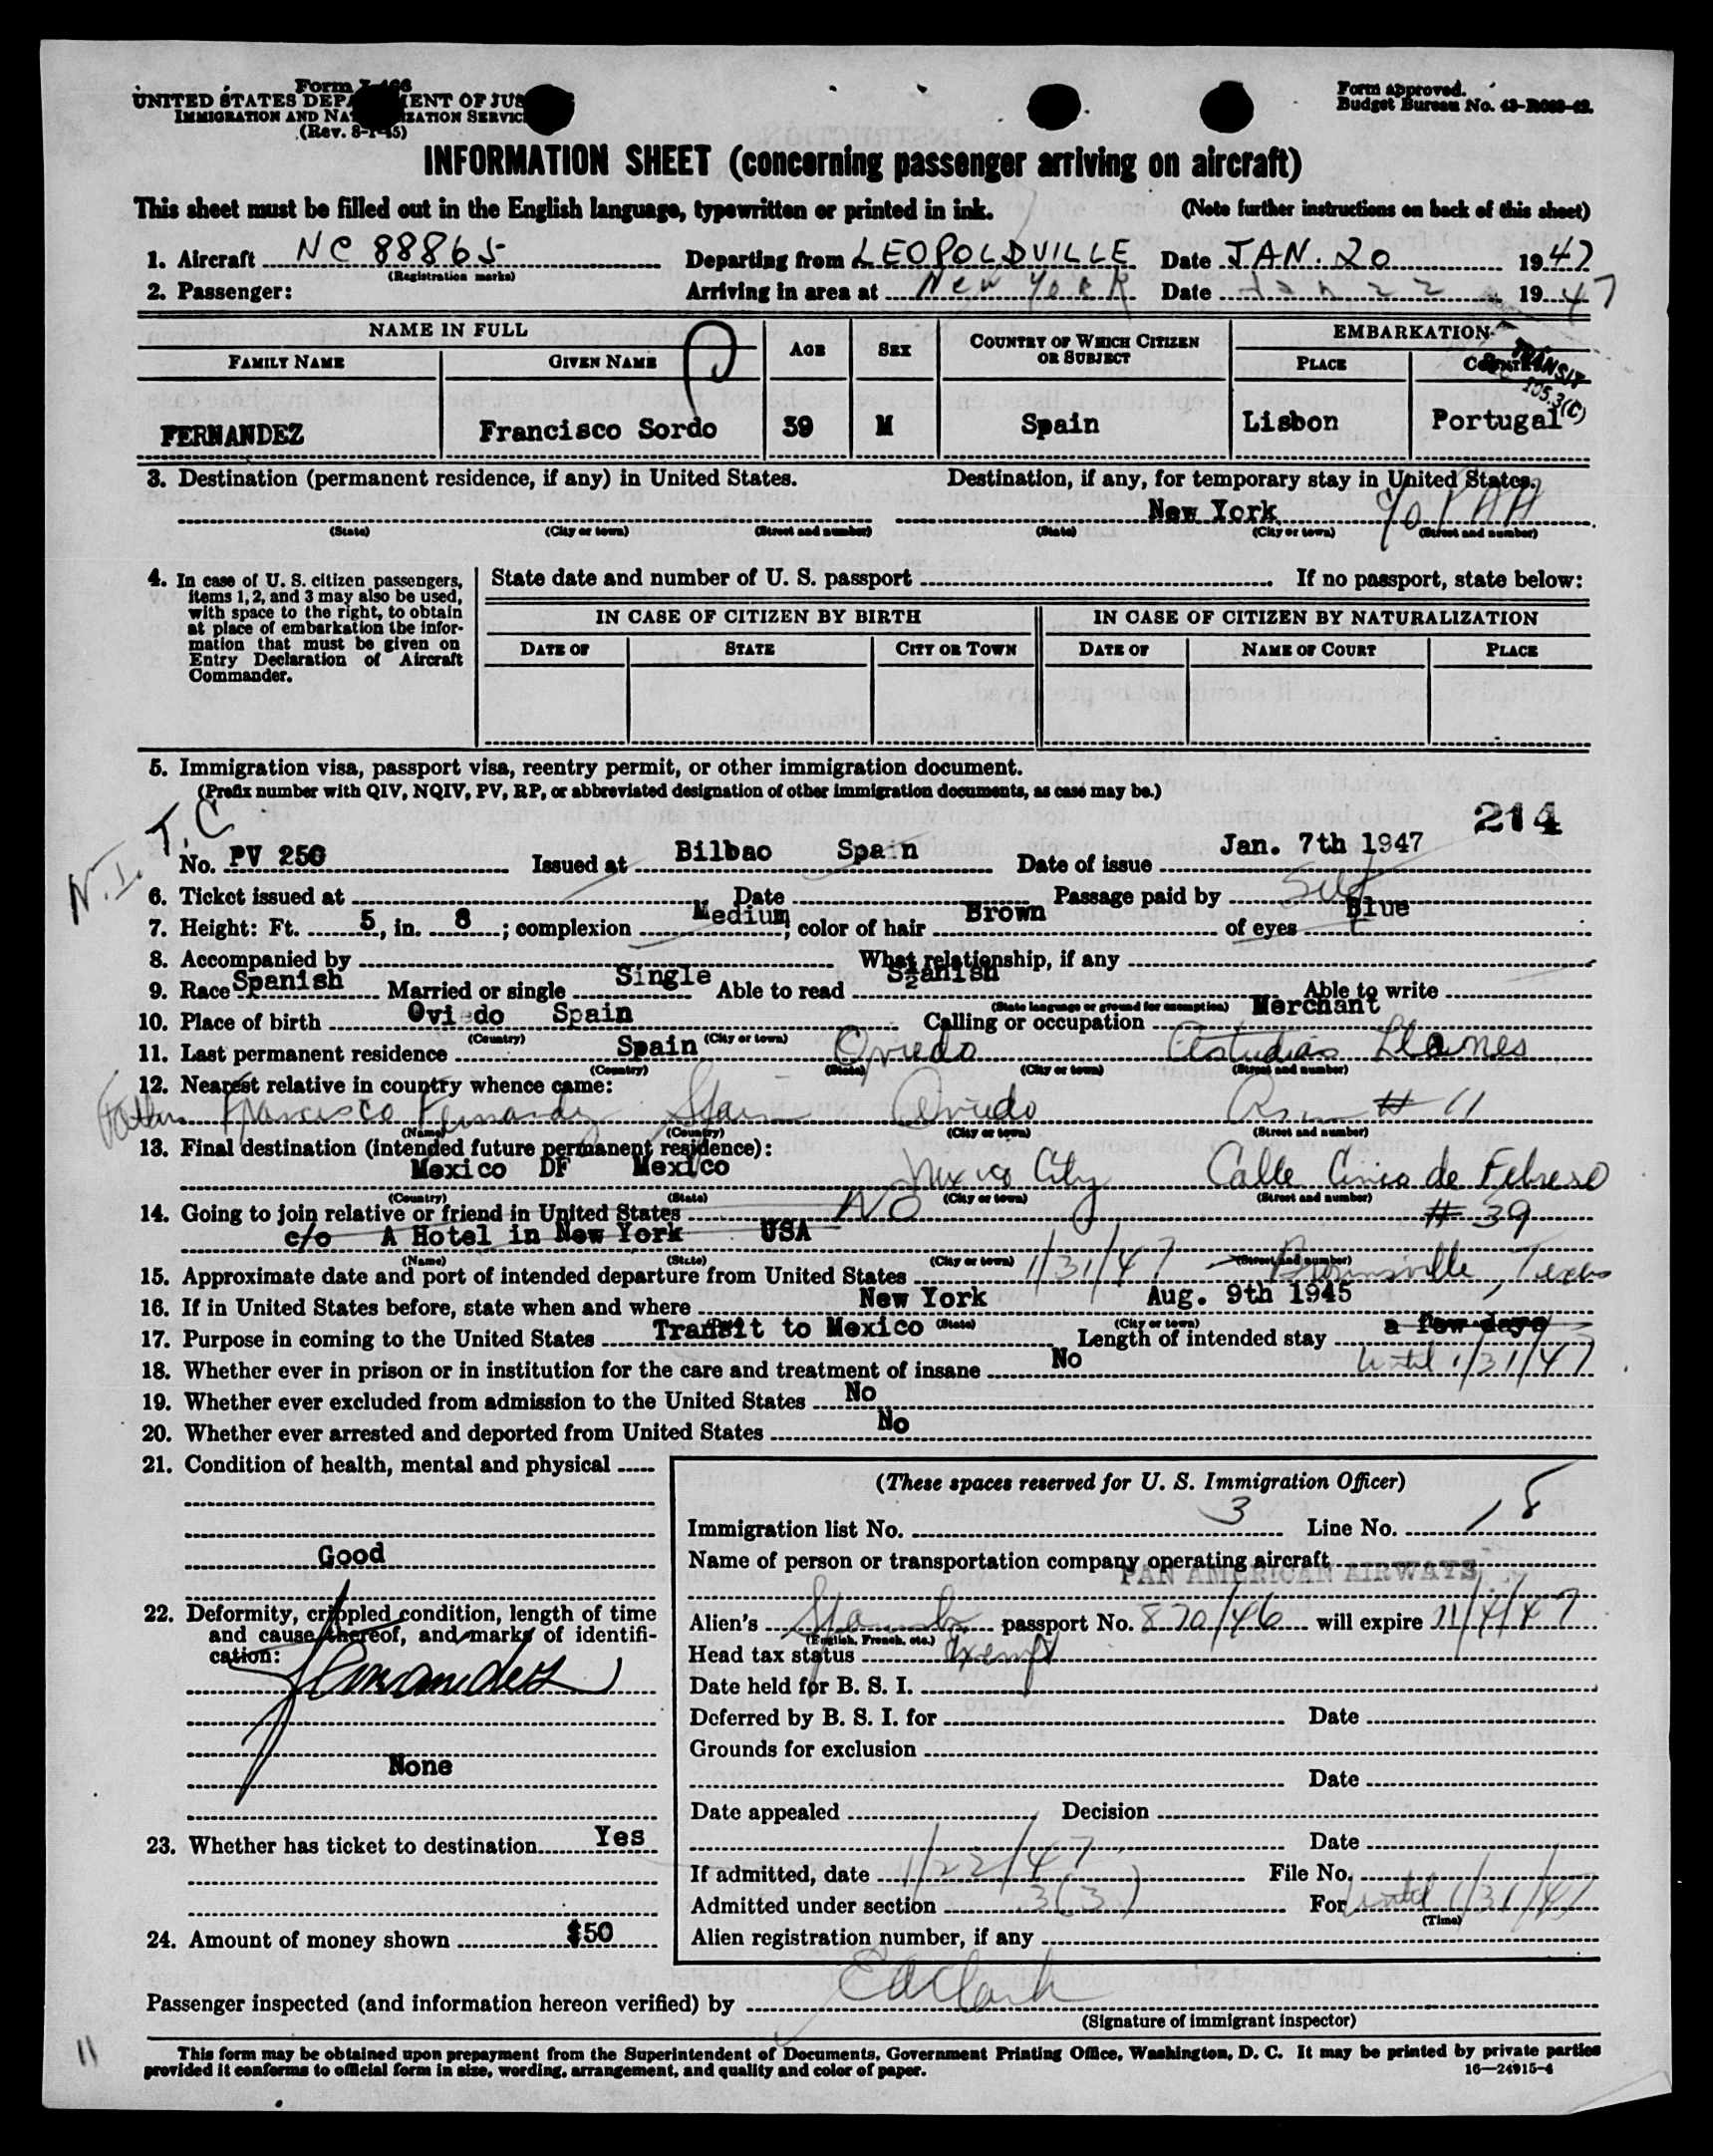 Form I-466
UNITED STATES DEPARTMENT OF JUSTICE
IMMIGRATION AND NATURALIZATION SERVICE
(Rev. 8-1-45)
Form approved.
Budget Bureau No.
INFORMATION SHEET (concerning passenger arriving on aircraft)
This sheet must be filled out in the English language, typewritten or printed in ink. (Note further instructions on back of this sheet)
1. Aircraft NC 88865 Departing from LEOPOLDVILLE Date JAN. 20 1947
(Registration marks)
2. Passenger: Arriving in area at New York Date Jan 22 1947
NAME IN FULL AGE SEX COUNTRY OF WHICH CITIZEN OR SUBJECT EMBARKATION
FAMILY NAME GIVEN NAME PLACE COUNTRY
TRANSIT
105.3(C)
FERNANDEZ Francisco Sordo 39 M Spain Lisbon Portugal
3. Destination (permanent residence, if any) in United States. Destination, if any, for temporary stay in United States.
New York c/o PAA
(State) (City or town) (Street and number) (State) (City or town) (Street and number)
4. In case of U. S. citizen passengers, items 1, 2, and 3 may also be used, with space to the right, to obtain at place of embarkation the information that must be given on Entry Declaration of Aircraft Commander.
State date and number of U. S. passport If no passport, state below:
IN CASE OF CITIZEN BY BIRTH IN CASE OF CITIZEN BY NATURALIZATION
DATE OF STATE CITY OR TOWN DATE OF NAME OF COURT PLACE
5. Immigration visa, passport visa, reentry permit, or other immigration document.
(Prefix number with QIV, NQIV, PV, RP, or abbreviated designation of other immigration documents, as case may be.)
T.C 214
N.I.
No. PV 256 Issued at Bilbao Spain Date of issue Jan. 7th 1947
6. Ticket issued at Date Passage paid by Self
7. Height: Ft. 5, in. 8; complexion Medium; color of hair Brown of eyes Blue
8. Accompanied by What relationship, if any
9. Race Spanish Married or single Single Able to read Spanish Able to write
(State language or ground for exemption)
10. Place of birth Oviedo Spain Calling or occupation Merchant
(Country) (City or town)
11. Last permanent residence Spain Oviedo Asturias Llanes
(Country) (State) (City or town) (Street and number)
12. Nearest relative in country whence came:
Father Francisco Fernandez Spain Oviedo # 11
(Name) (Country) (City or town) (Street and number)
13. Final destination (intended future permanent residence):
Mexico DF Mexico Mexico City Calle Cinco de Febrero
(Country) (State) (City or town) (Street and number)
14. Going to join relative or friend in United States NO # 39
c/o A Hotel in New York USA
(Name) (State) (City or town) (Street and number)
15. Approximate date and port of intended departure from United States 1/31/47 Brownsville, Texas
16. If in United States before, state when and where New York Aug. 9th 1945
(State) (City or town)
17. Purpose in coming to the United States Transit to Mexico Length of intended stay a few days
until 1/31/47
18. Whether ever in prison or in institution for the care and treatment of insane No
19. Whether ever excluded from admission to the United States No
20. Whether ever arrested and deported from United States No
21. Condition of health, mental and physical
Good
22. Deformity, crippled condition, length of time and cause thereof, and marks of identification:
Fernandez
None
23. Whether has ticket to destination Yes
24. Amount of money shown $50
(These spaces reserved for U. S. Immigration Officer)
Immigration list No. 3 Line No. 18
Name of person or transportation company operating aircraft
PAN AMERICAN AIRWAYS
Alien's Spanish passport No. 870/46 will expire 11/4/47
(English, French, etc.)
Head tax status Exempt
Date held for B. S. I.
Deferred by B. S. I. for Date
Grounds for exclusion
Date
Date appealed Decision
Date
If admitted, date 1/22/47 File No.
Admitted under section 3(3) For until 1/31/47
(Time)
Alien registration number, if any
Passenger inspected (and information hereon verified) by EdClark
(Signature of immigrant inspector)
11
This form may be obtained upon prepayment from the Superintendent of Documents, Government Printing Office, Washington, D. C. It may be printed by private parties
provided it conforms to official form in size, wording, arrangement, and quality and color of paper. 16—24915-4